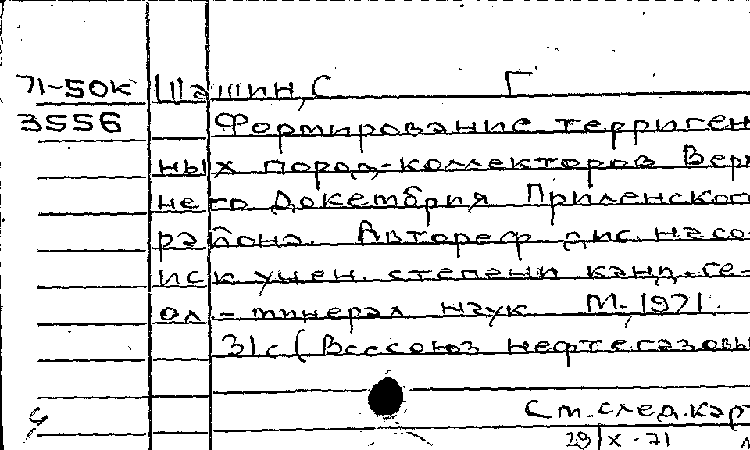 71-50к Шашин, С. Г
3556 Формирование терриген
ных пород-коллекторов Верх
него Докембрия Приленского
района. Автореф. дис. на со
иск учен. степени канд. ге-
ол-минерал наук М., 1971.
31с (Всесоюз нефтегазовы
См. след. кар
29/X-71